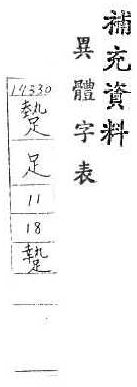 補充資料
異體字表
14330
足
11
18